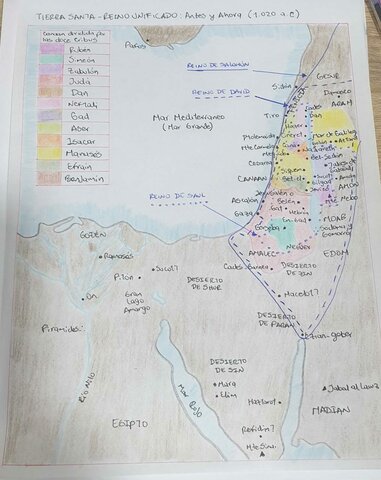 TIERRA SANTA - REINO UNIFICADO: Antes y Ahora (1.020 a.C)
Canaan dividida por
las doce tribus
Rubén
Simeón
Zabulón
Judá
Dan
Neftalí
Gad
Aser
Isacar
Manasés
Efrain
Benjamín
Pafos
REINO DE SALOMÓN
REINO DE DAVID
REINO DE SAUL
Mar Mediterráneo
(Mar Grande)
GESUR
Damasco
ARAM
Sidón
Tiro
Dan
Hazor
Mte. Carmelo
Cesarea
CANAAN
Siquem
Betel
Jerusalén
Ascalón
Belén
Gaza
Gat
Hebrón
AMÓN
Mte. Nebo
MOAB
Sodoma y
Gomorra
AMALEC
NEGUEV
EDOM
Cades Barnea
DESIERTO
DE ZIN
Macelot?
DESIERTO
DE PARAN
Ezion-geber
GOSÉN
Ramesés
Pitón
Sucot?
On
Gran
Lago
Amargo
DESIERTO
DE SHUR
Piramides
Río Nilo
EGIPTO
Mar Rojo
DESIERTO
DE SIN
Mara
Elim
Hazerot
Refidin?
Mte Sinaí
Jabal al Lawz
MADIAN